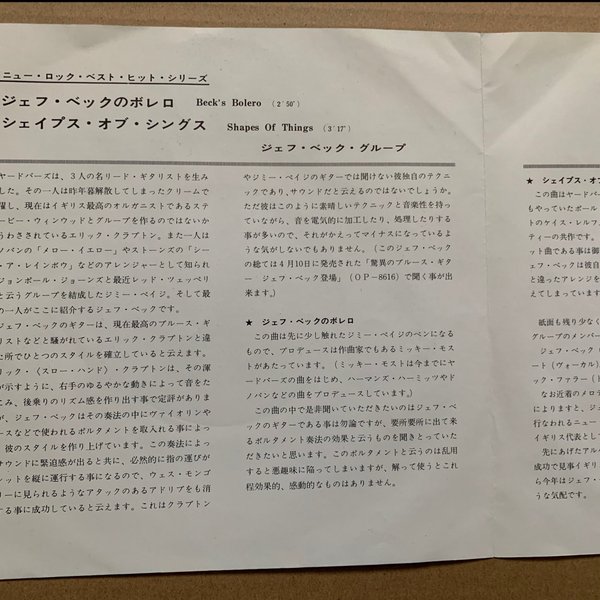 ニュー・ロック・ベスト・ヒット・シリーズ
ジェフ・ベックのボレロ Beck's Bolero (2'50")
シェイプス・オブ・シングス Shapes Of Things (3'17")
ジェフ・ベック・グループ
ヤードバーズは、３人の名リード・ギタリストを生み
した。その一人は昨年暮解散してしまったクリームで
躍し、現在はイギリス最高のオルガニストであるステ
ービー・ウィンウッドとグループを作るのではないか
うわさされているエリック・クラプトン。また一人は
ノバンの「メロー・イエロー」やストーンズの「シー
・ア・レインボウ」などのアレンジャーとして知られ
ジョンポール・ジョーンズと最近レッド・ツェッペリ
と云うグループを結成したジミー・ペイジ。そして最
の一人がここに紹介するジェフ・ベックです。
ジェフ・ベックのギターは、現在最高のブルース・ギ
リストなどと騒がれているエリック・クラプトンと違
た所でひとつのスタイルを確立していると云えます。
リック・〈スロー・ハンド〉・クラプトンは、その渾
が示すように、右手のゆるやかな動きによって音をた
こみ、後乗りのリズム感を作り出す事で定評がありま
が、ジェフ・ベックはその奏法の中にヴァイオリンや
ースなどで使われるポルタメントを取入れる事によっ
、彼のスタイルを作り上げています。この奏法によっ
サウンドに緊迫感が出ると共に、必然的に指の運びが
レットを縦に運行する事になるので、ウェス・モンゴ
リーに見られるようなアタックのあるアドリブをも消
する事に成功していると云えます。これはクラプトン
やジミー・ペイジのギターでは聞けない彼独自のテクニ
ックであり、サウンドだと云えるのではないでしょうか。
ただ彼はこのように素晴しいテクニックと音楽性を持っ
ていながら、音を電気的に加工したり、処理したりする
事が多いので、それがかえってマイナスになっているよ
うな気がしないでもありません。（このジェフ・ベック
の総ては４月10日に発売された「驚異のブルース・ギタ
ー ジェフ・ベック登場」（ＯＰ―8616）で聞く事が出
来ます。）
★ ジェフ・ベックのボレロ
この曲は先に少し触れたジミー・ペイジのペンになる
もので、プロデュースは作曲家でもあるミッキー・モス
トがあたっています。（ミッキー・モストは今までにヤ
ードバーズの曲をはじめ、ハーマンズ・ハーミッツやド
ノバンなどの曲をプロデュースしています。）
この曲の中で是非聞いていただきたいのはジェフ・ベ
ックのギターである事は勿論ですが、要所要所に出て来
るポルタメント奏法の効果と云うものを聞きとっていた
だきたいと思います。このポルタメントと云うのは乱用
すると悪趣味に陥ってしまいますが、解って使うとこれ
程効果的、感動的なものはありません。
★ シェイプス・オブ
この曲はヤードバー
もやっていたポール
トのケイス・レルフ、
ティーの共作です。
ット曲である事は御
ェフ・ベックは彼自
と違ったアレンジを
えてしまっています
紙面も残り少なく
グループのメンバー
ジェフ・ベック（
ート（ヴォーカル）
ック・ファラー（ト
なお近着のメロデ
によりますと、ジェ
行なわれるニュー・
イギリス代表として
先にあげたアルバ
成功で見事イギリス
ら今年はジェフ・
うな気配です。